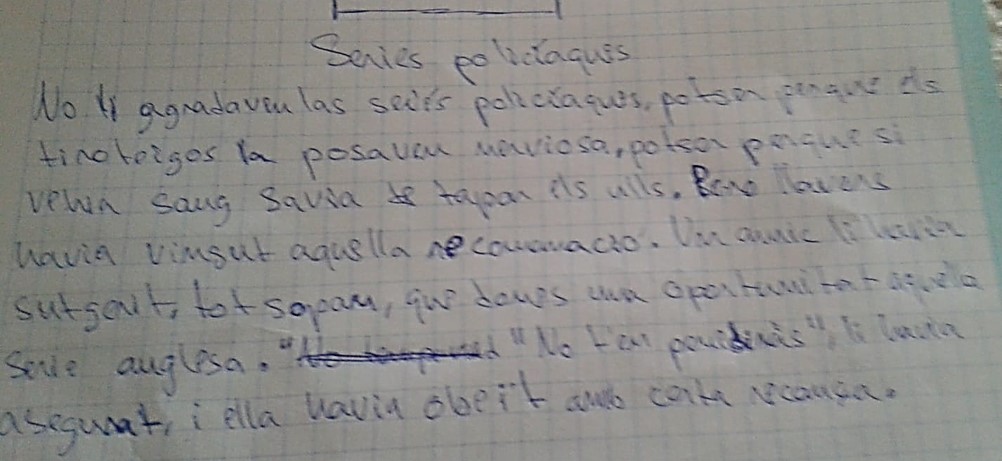 Series policiaques
No li agradaven las series policiaques, potser perque els
tirotejos la posaven nerviosa, potser perque si
vehia sang savia de tapar els ulls. Pero llavors
havia vingut aquella recomanacio. Un amic li havia
sutgerit, tot sopam, que dones una oportunitat aquella
serie anglesa. "No t'en penidiràs", li havia
asegurat, i ella havia obeït amb certa recansa.